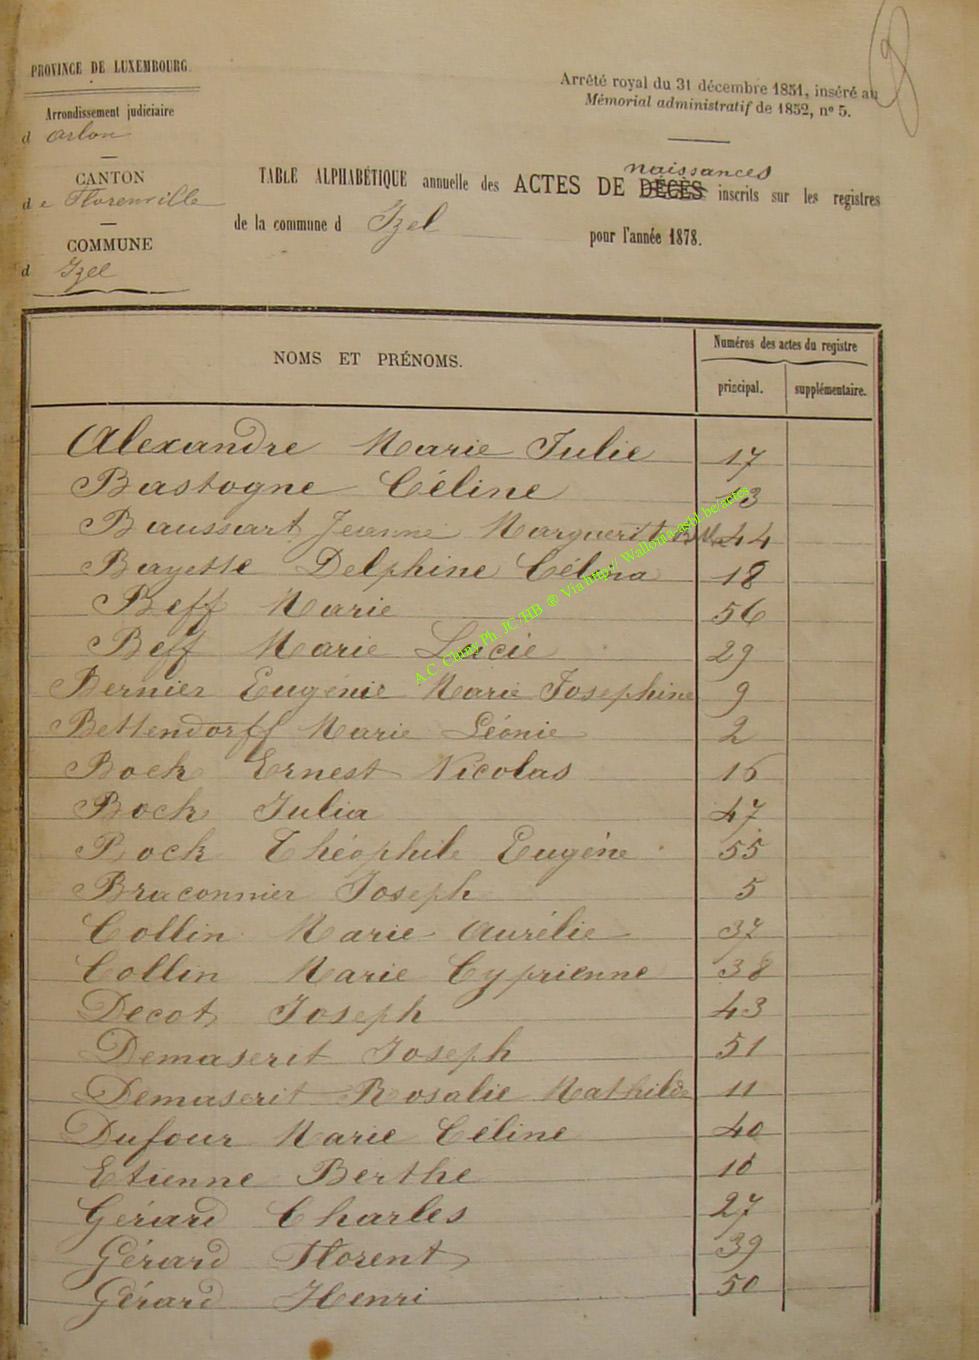 PROVINCE DE LUXEMBOURG
Arrondissement judiciaire
d Arlon
CANTON
de Florenville
COMMUNE
d Izel
Arrêté royal du 31 décembre 1851, inséré au
Mémorial administratif de 1852, nº 5.
naissances
TABLE ALPHABÉTIQUE annuelle des ACTES DE DÉCÈS inscrits sur les registres
de la commune d Izel pour l'année 1878.
NOMS ET PRÉNOMS. Numéros des actes du registre
principal. supplémentaire.
Alexandre Marie Julie 17
Bastogne Céline 13
Baussart Jeanne Marguerite 44
Bayette Delphine Célina 18
Beff Marie 56
Beff Marie Lucie 29
Bernier Eugénie Marie Josephine 9
Bettendorff Marie Léonie 2
Bock Ernest Nicolas 16
Bock Julia 47
Bock Théophile Eugène 55
Braconnier Joseph 5
Collin Marie Aurélie 37
Collin Marie Cyprienne 38
Decot Joseph 43
Demaserit Joseph 51
Demaserit Rosalie Mathilde 11
Dufour Marie Céline 40
Etienne Berthe 10
Gérard Charles 27
Gérard Florent 39
Gérard Henri 50
A.C. Chiny Ph. JC/HB ® Via http://Wallonia-asbl.be/actes